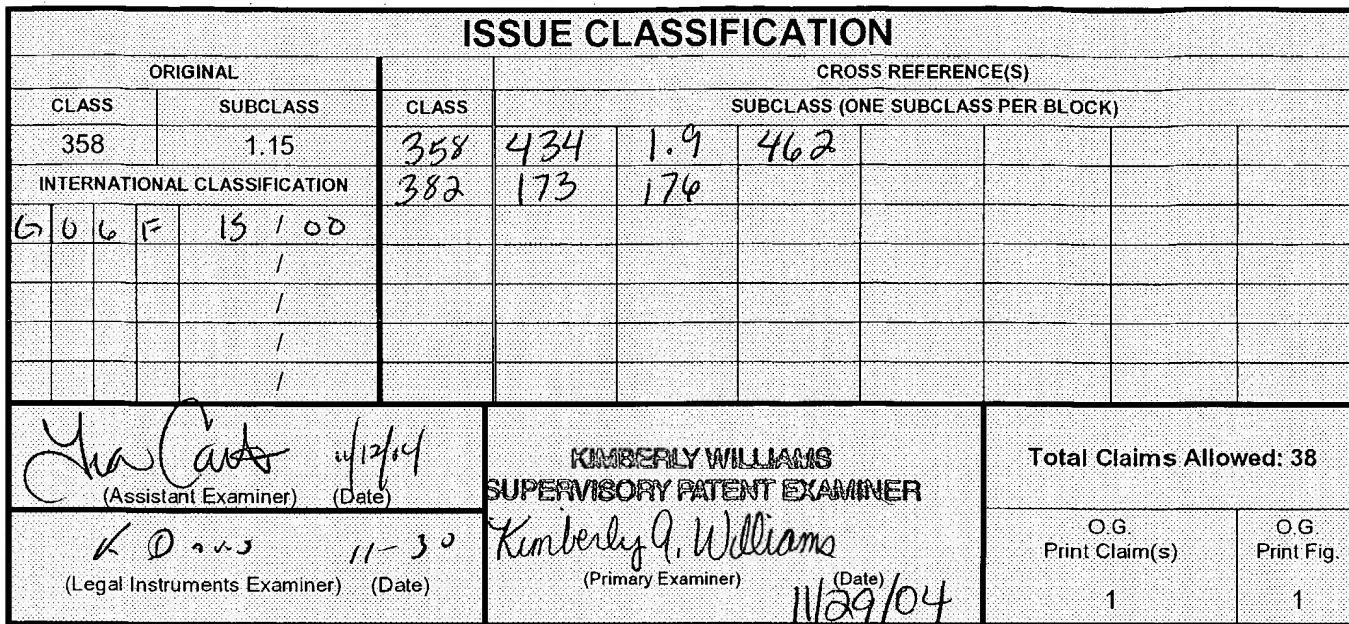 ISSUE CLASSIFICATION
ORIGINAL CROSS REFERENCE(S)
CLASS SUBCLASS CLASS SUBCLASS (ONE SUBCLASS PER BLOCK)
358 1.15 358 434 1.9 462
INTERNATIONAL CLASSIFICATION 382 173 176
G 0 6 F 15 / 00
/
/
/
/
11/12/04
(Assistant Examiner) (Date)
K Davis 11-30
(Legal Instruments Examiner) (Date)
KIMBERLY WILLIAMS
SUPERVISORY PATENT EXAMINER
Kimberly A. Williams
(Primary Examiner) (Date)
11/29/04
Total Claims Allowed: 38
O.G. O.G.
Print Claim(s) Print Fig.
1 1